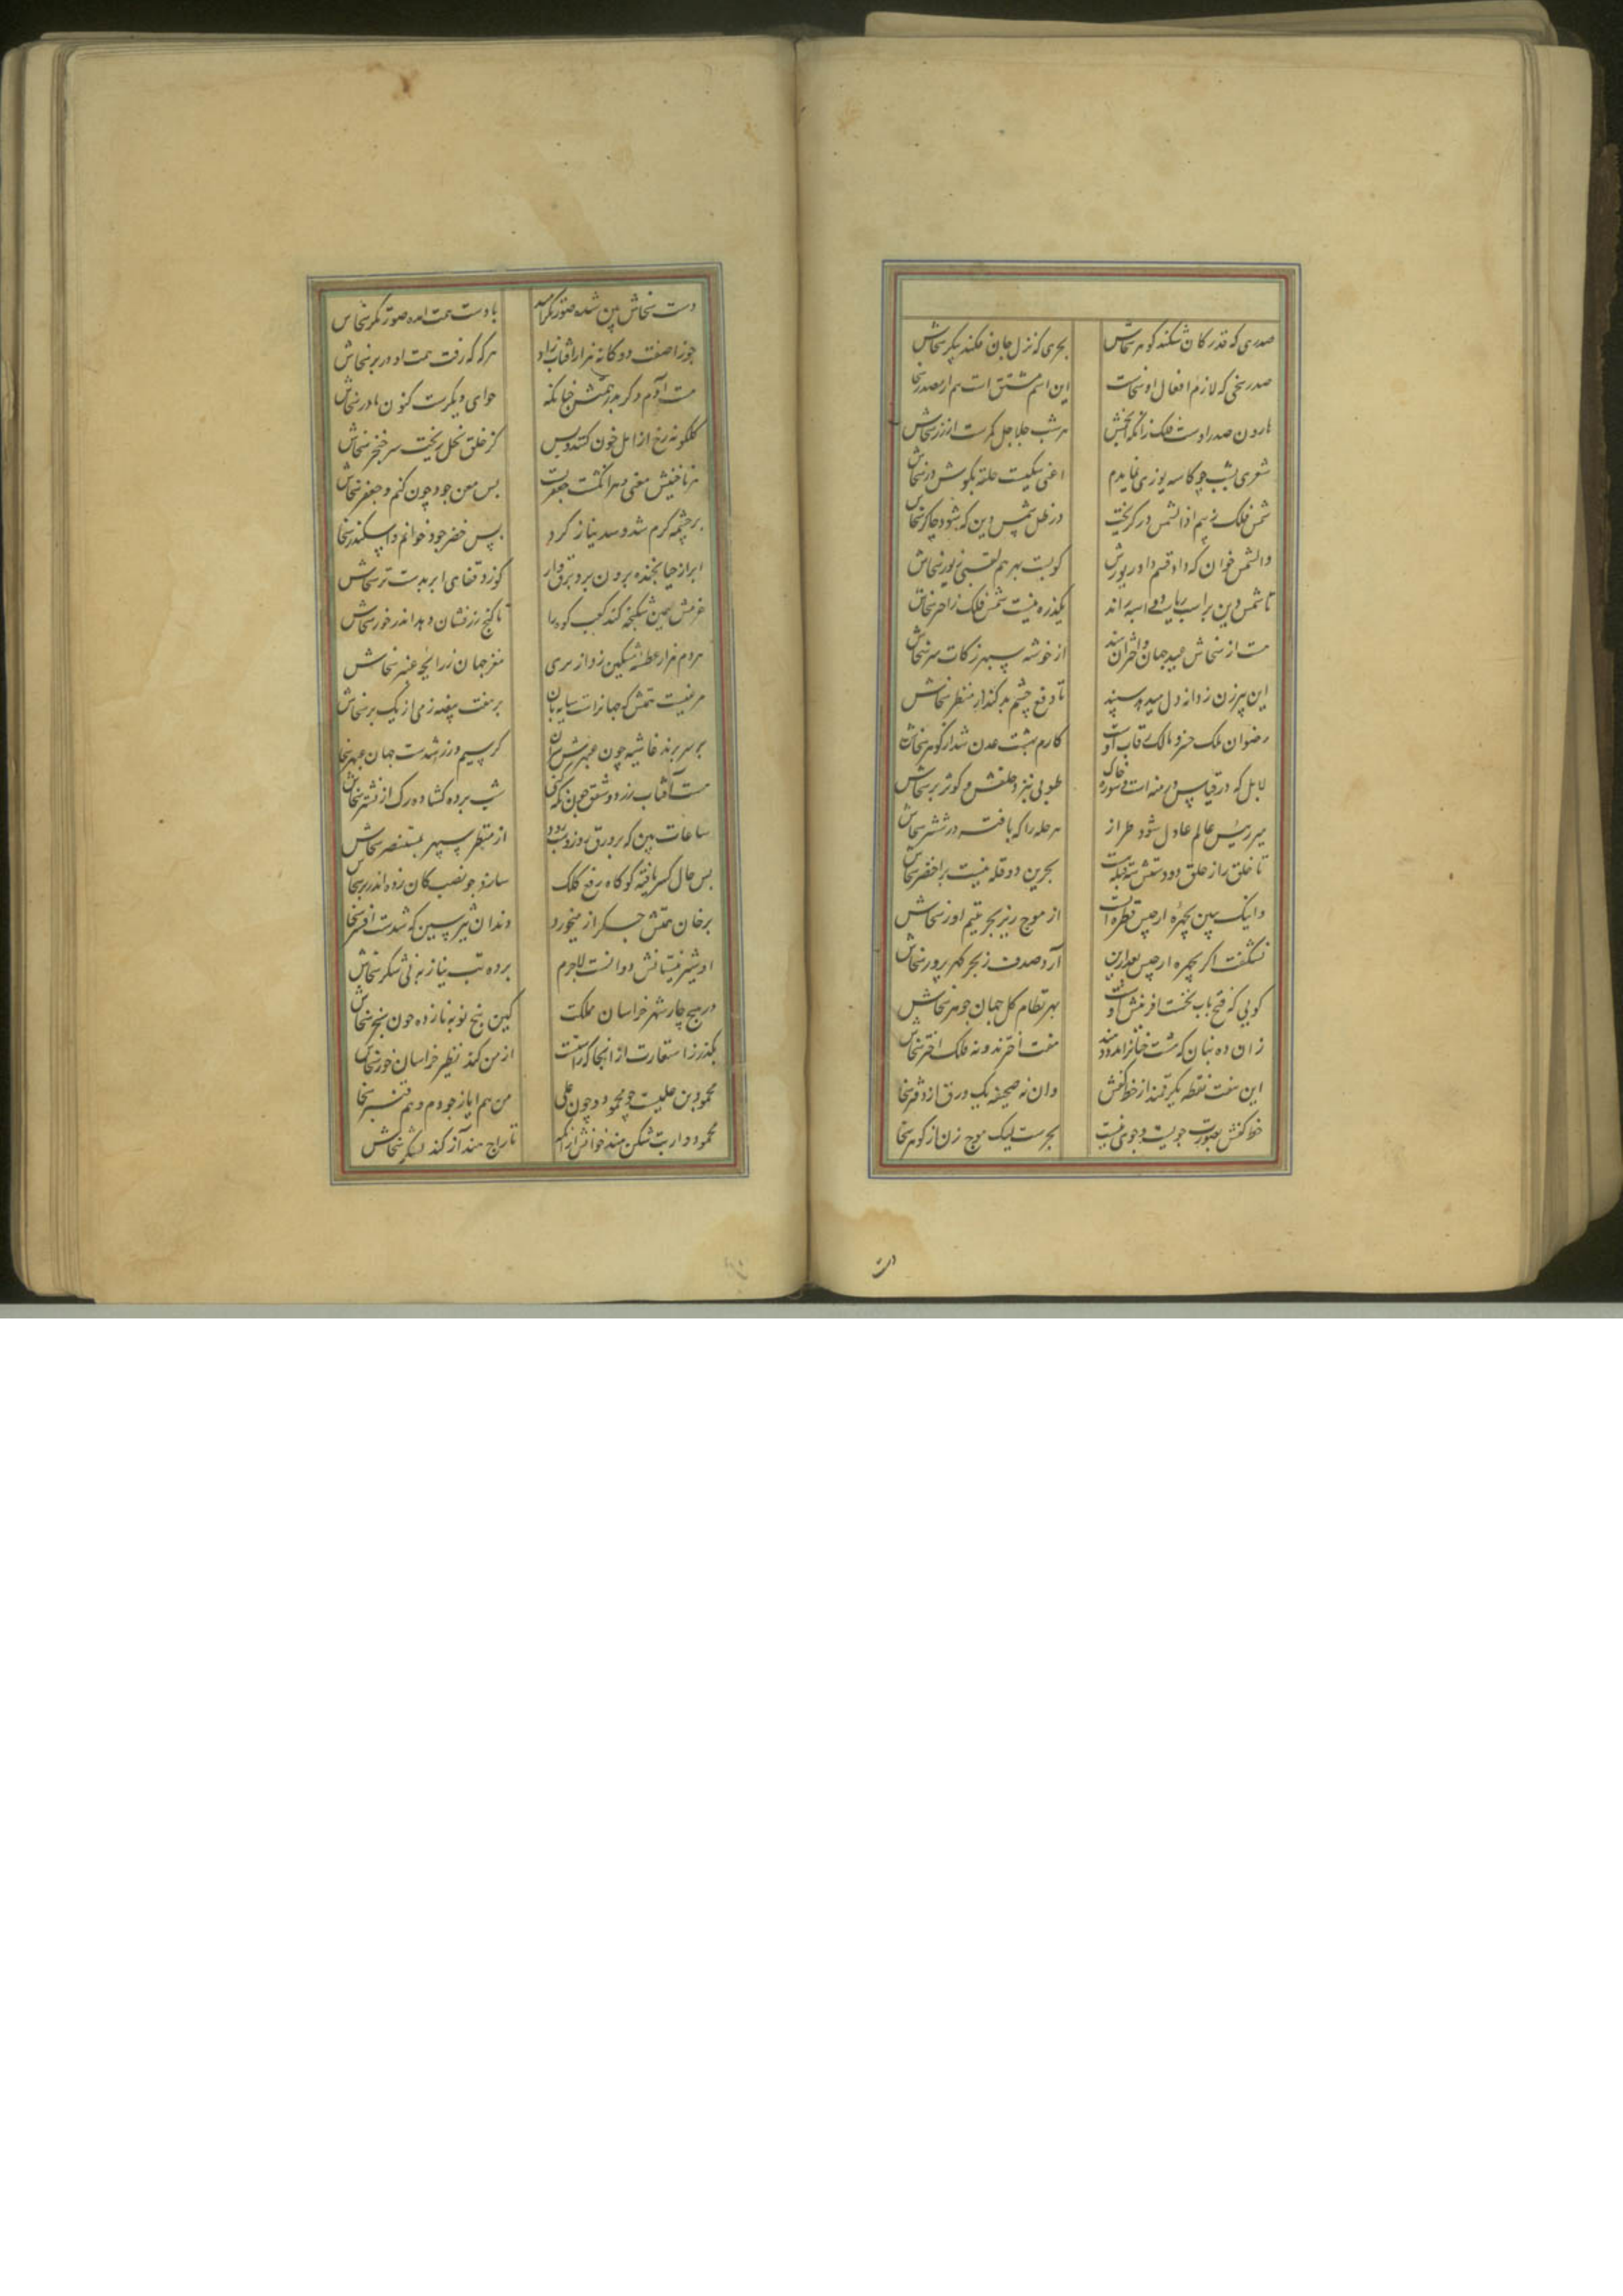 صدری که قدر کان شکند گوهر سخاش بحری که نزل جان فکند پیکر سخاش
صدر سخی که لازم افعال او سخاست این اسم مشتق است هم از مصدر سخا
هارون صدر اوست فلک زانکه انجمش هر شب جلاجل کمرست از زر سخاش
شعری بشب چو کاسه یوزی نمایدم اعنی سگیست حلقه بگوش در سخاش
شمس فلک ز بیم اذا الشمس در گریخت در ظل شمس دین که شود چاکر سخاش
والشمس خوان که داد قسم داورش کوبست بهر هم لقبی زیور سخاش
تا شمس دین براسب ریاست دو اسبه راند یکذره نیست شمس فلک زاختر سخاش
هست از سخاش عید جهان واختران از خوشه سپهر زکات سر سخاش
این پیرزن ز دانه دل میدهد سپند تا دفع چشم بد کند از منظر سخاش
رضوان ملک خسرو مالک رقاب اوست کارم بهشت عدن شد از گوهر سخاش
لابل که در قیاس درمنه است و شوره خاک طوبی بنزد خلقش و کوثر بر سخاش
میر رئیس عالم عادل شود طراز هر حله را که بافته در ششتر سخاش
تا خلق را ز خلق و دو دستش سه قبله است بحرین دو قله نیست بر اخضر سخاش
وانک ببین بچهره ارجیش قطره از موج ریز بحر یتیم اور سخاش
نشگفت اگر بچیره ارجیس بعد ازین آرد صدف ز بحر گهر پرور سخاش
گویی که فتح باب نخست آفرینش او بهر نظام کل جهان جوهر سخاش
زان ده بنان که هشت جنان را مدد دهند هفت اخترند و نه فلک اختر سخاش
این هفت نقطه یک رقمند از خط کفش وان نه صحیفه یک ورق از دفتر سخا
خط کفش بصورت جویست و جوی نیست بحرست لیک موج زن از گوهر سخا
دست
دست سخاش بین شده صورتگر امید با دست همت آمده صورتگر سخاش
جوزا صفت دوگانه هزار آفتاب زاد هر که که رفت همت او در بر سخاش
هست آدم دگر پدر همتش چنانکه حوای دیگرست کنون مادر سخاش
گلگونه رخ از امل خون کنند و بس کز خلق بخل ریخت سر خنجر سخاش
هر ناخنیش معنی و هر انگشت جعفریست پس معن جود چون کنم و جعفر سخاش
بر چشمه کرم شد و سد نیاز کرد پس خضر جود خوانم و اسکندر سخا
ابر از حیا بخنده برون برد برق وار کو زد قفای ابر بدست تر سخاش
تا گنج زرفشان دهد اندر خور سخاش
هر دم هزار عطسه مشکین زد از مغز جهان ز رایحه عنبر سخاش
مرغیست همتش که جهانراست سایه بان بر هفت بیضه زمی از یک پر سخاش
بر سر برند غاشیه چون عبهرش سران کز سیم و زر شدست جهان عبهر سخا
هست آفتاب زرد و شفق چون نگه کنی تب برده گشاده رگ از نشتر سخاش
ساعات بین که بر ورق روز و شب رود از منتظر سپهر بمستنصر سخاش
پس حال کسر یافته کو گاه رفع کلک سازد چو نصب کان زده اندر بر سخا
بر خوان همتش جگر آز میخورد دندان شیر سیین که شدست افسر سخا
او شیر نیستانش دوانست لاجرم برده تب نیاز به نی شکر سخاش
در هیچ چار شهر خراسان مملکت کین پنج نوبه نازده چون سنجر سخاش
بگذر ز استعارت از آنجا که راستیست از من کند نظیر خراسان خور سخاش
محمود بن علیست چو محمود و چون علی من هم ایاز جودم و هم قنبر سخا
محمودوار بت شکن هند خوانش از آنکه تاراج هند آز کند لشکر سخاش